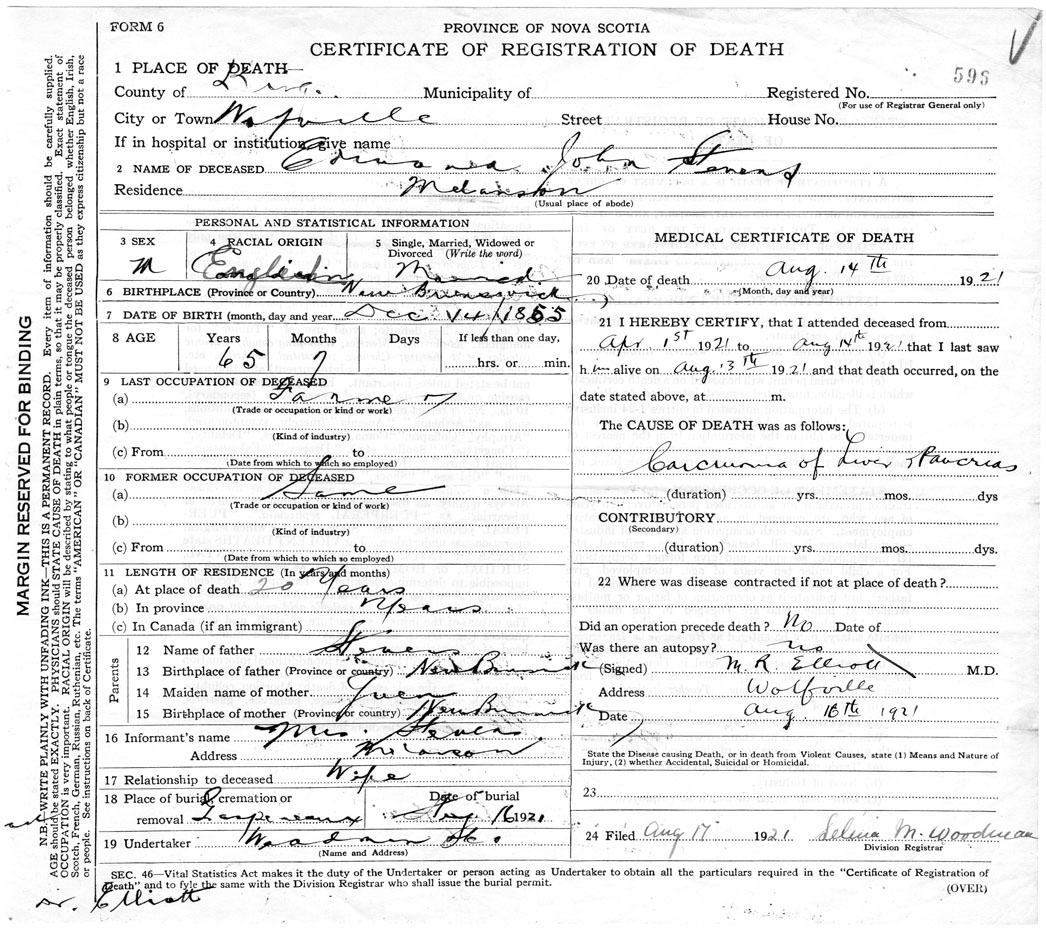 FORM 6
PROVINCE OF NOVA SCOTIA
CERTIFICATE OF REGISTRATION OF DEATH
596
1 PLACE OF DEATH
County of Municipality of Registered No.
(For use of Registrar General only)
City or Town Wolfville Street House No.
If in hospital or institution, give name
2 NAME OF DECEASED Edmund John Stevens
Residence Melanson
(Usual place of abode)
PERSONAL AND STATISTICAL INFORMATION
3 SEX 4 RACIAL ORIGIN 5 Single, Married, Widowed or
Divorced (Write the word)
M English Married
6 BIRTHPLACE (Province or Country) New Brunswick
7 DATE OF BIRTH (month, day and year Dec 14 / 1855
8 AGE Years Months Days If less than one day,
65 7 hrs. or min.
9 LAST OCCUPATION OF DECEASED
(a) Farmer
(Trade or occupation or kind or work)
(b)
(Kind of industry)
(c) From to
(Date from which to which so employed)
10 FORMER OCCUPATION OF DECEASED
(a) Same
(Trade or occupation or kind of work)
(b)
(Kind of industry)
(c) From to
(Date from which to which so employed)
11 LENGTH OF RESIDENCE (In years and months)
(a) At place of death 20 Years
(b) In province Years
(c) In Canada (if an immigrant)
Parents
12 Name of father Stevens
13 Birthplace of father (Province or country) New Brunswick
14 Maiden name of mother
15 Birthplace of mother (Province or country) New Brunswick
16 Informant's name Mrs. Stevens
Address Melanson
17 Relationship to deceased Wife
18 Place of burial, cremation or Date of burial
removal Gaspereaux Aug 16 1921
19 Undertaker Woodman
(Name and Address)
MEDICAL CERTIFICATE OF DEATH
20 Date of death Aug. 14th 1921
(Month, day and year)
21 I HEREBY CERTIFY, that I attended deceased from
Apr 1st 1921 to Aug 14th 1921 that I last saw
him alive on Aug. 13th 1921 and that death occurred, on the
date stated above, at m.
The CAUSE OF DEATH was as follows:
Carcinoma of Liver & Pancreas
(duration) yrs. mos. dys
CONTRIBUTORY
(Secondary)
(duration) yrs. mos. dys.
22 Where was disease contracted if not at place of death?
Did an operation precede death? No Date of
Was there an autopsy? No
(Signed) M. R. Elliott M.D.
Address Wolfville
Date Aug. 16th 1921
State the Disease causing Death, or in death from Violent Causes, state (1) Means and Nature of
Injury, (2) whether Accidental, Suicidal or Homicidal.
23
24 Filed Aug 17 1921 Selina M. Woodman
Division Registrar
SEC. 46—Vital Statistics Act makes it the duty of the Undertaker or person acting as Undertaker to obtain all the particulars required in the "Certificate of Registration of
Death" and to fyle the same with the Division Registrar who shall issue the burial permit.
(OVER)
Dr. Elliott
MARGIN RESERVED FOR BINDING
N.B.—WRITE PLAINLY WITH UNFADING INK—THIS IS A PERMANENT RECORD. Every item of information should be carefully supplied.
AGE should be stated EXACTLY. PHYSICIANS should STATE CAUSE OF DEATH in plain terms, so that it may be properly classified. Exact statement of
OCCUPATION is very important. RACIAL ORIGIN will be described by stating to what people or tongue the deceased person belonged whether English, Irish,
Scotch, French, German, Russian, Ruthenian, etc. The terms "AMERICAN" OR "CANADIAN" MUST NOT BE USED as they express citizenship but not a race
or people. See instructions on back of Certificate.